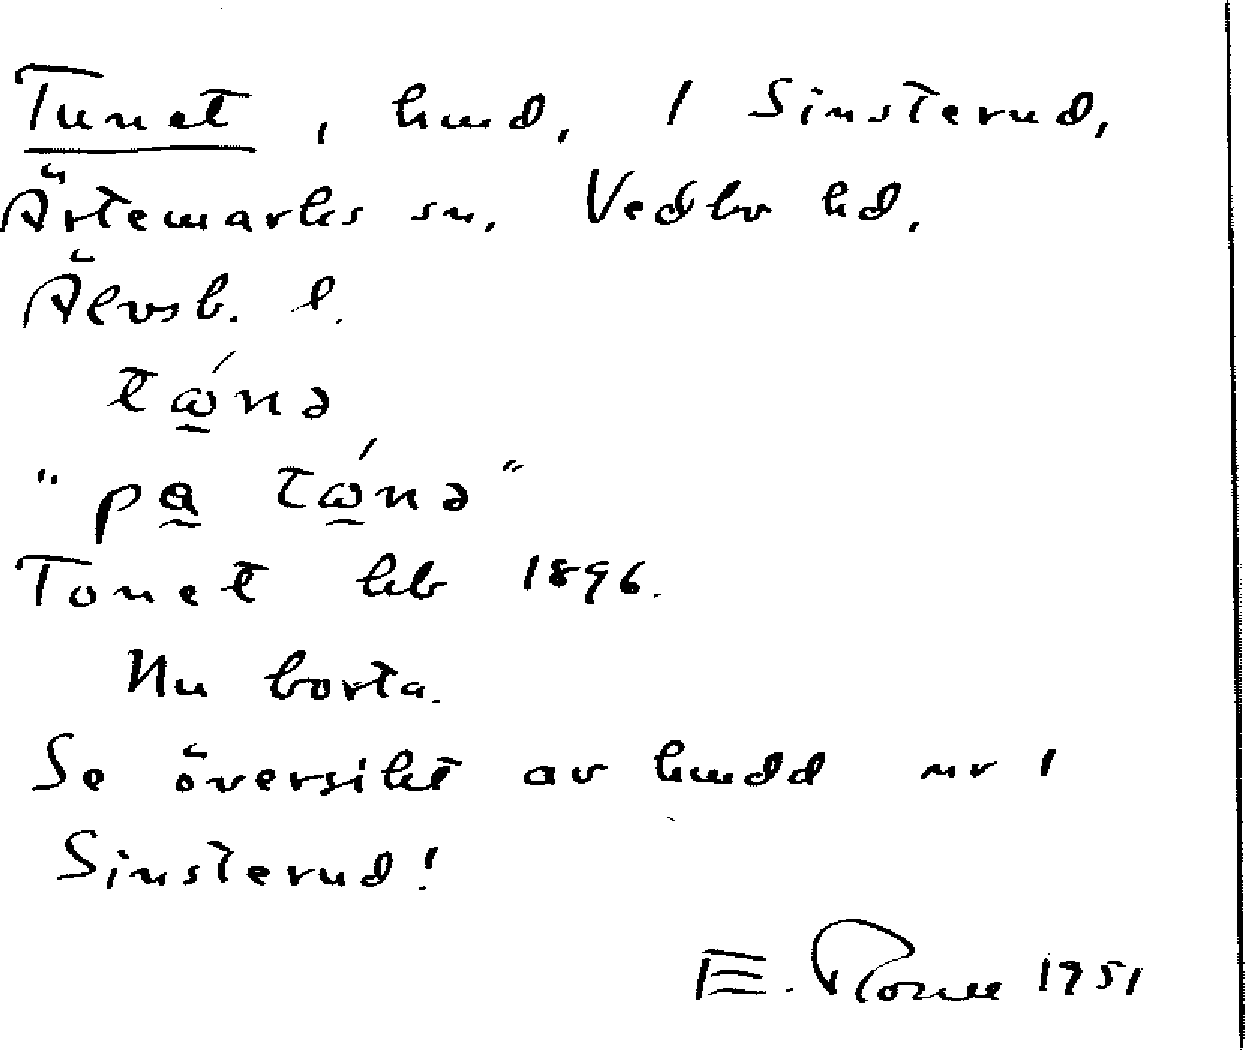 Tunet, hmd, 1 Sinsterud,
Ärtemarks sn, Vedbo hd,
Älvsb. l.
tώnə
"pa tώnə"
Tonet hkb 1896.
Nu borta.
Se översikt av hmdd nr 1
Sinsterud!
E. 1951